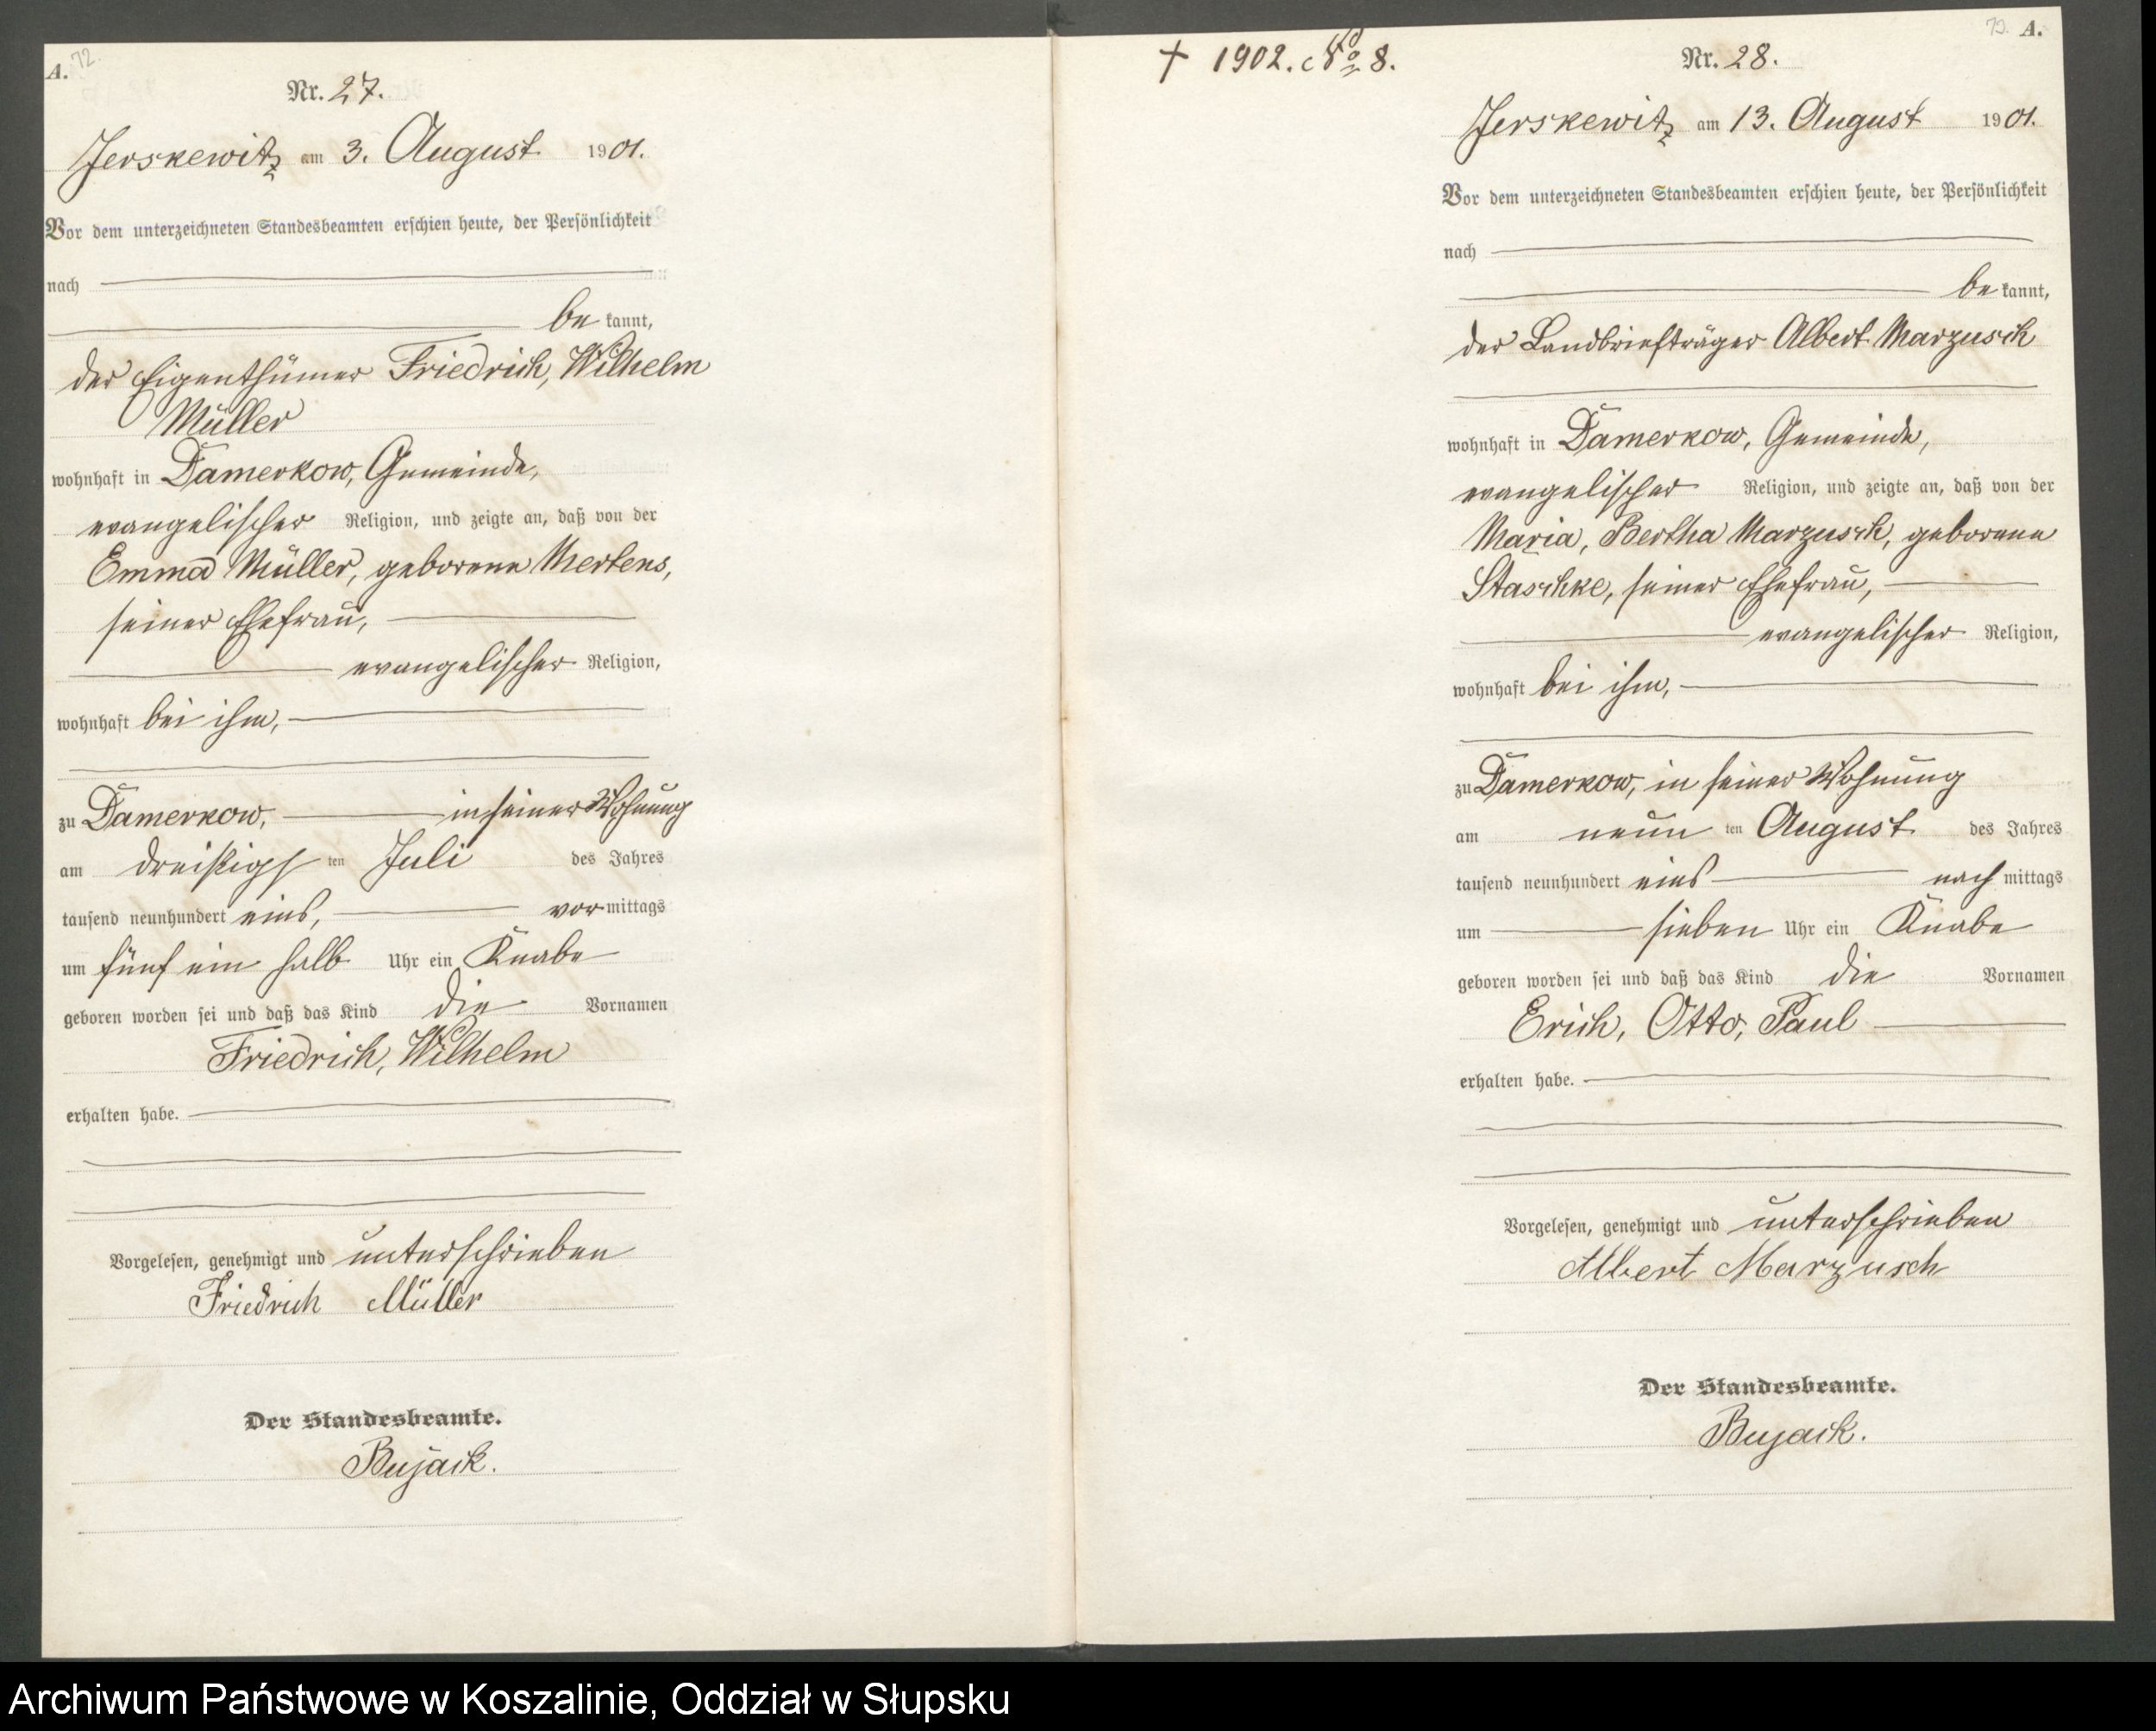 A. 72.
Nr. 27.
Jerskewitz am 3. August 1901.
Vor dem unterzeichneten Standesbeamten erschien heute, der Persönlichkeit
nach
be kannt,
der Eigenthümer Friedrich, Wilhelm
Müller
wohnhaft in Damerkow, Gemeinde,
evangelischer Religion, und zeigte an, daß von der
Emma Müller, geborene Mertens,
seiner Ehefrau,
evangelischer Religion,
wohnhaft bei ihm,
zu Damerkow, in seiner Wohnung
am dreißigs ten Juli des Jahres
tausend neunhundert eins, vor mittags
um fünf ein halb Uhr ein Knabe
geboren worden sei und daß das Kind die Vornamen
Friedrich, Wilhelm
erhalten habe.
Vorgelesen, genehmigt und unterschrieben
Friedrich Müller
Der Standesbeamte.
Bujack.
† 1902. No 8.
A.
Nr. 28.
Jerskewitz am 13. August 1901.
Vor dem unterzeichneten Standesbeamten erschien heute, der Persönlichkeit
nach
be kannt,
der Landbriefträger Albert Marzusch
wohnhaft in Damerkow, Gemeinde,
evangelischer Religion, und zeigte an, daß von der
Maria, Bertha Marzusch, geborene
Staschke, seiner Ehefrau,
evangelischer Religion,
wohnhaft bei ihm,
zu Damerkow, in seiner Wohnung
am neun ten August des Jahres
tausend neunhundert eins nach mittags
um sieben Uhr ein Knabe
geboren worden sei und daß das Kind die Vornamen
Erich, Otto, Paul
erhalten habe.
Vorgelesen, genehmigt und unterschrieben
Albert Marzusch
Der Standesbeamte.
Bujack.
Archiwum Państwowe w Koszalinie, Oddział w Słupsku